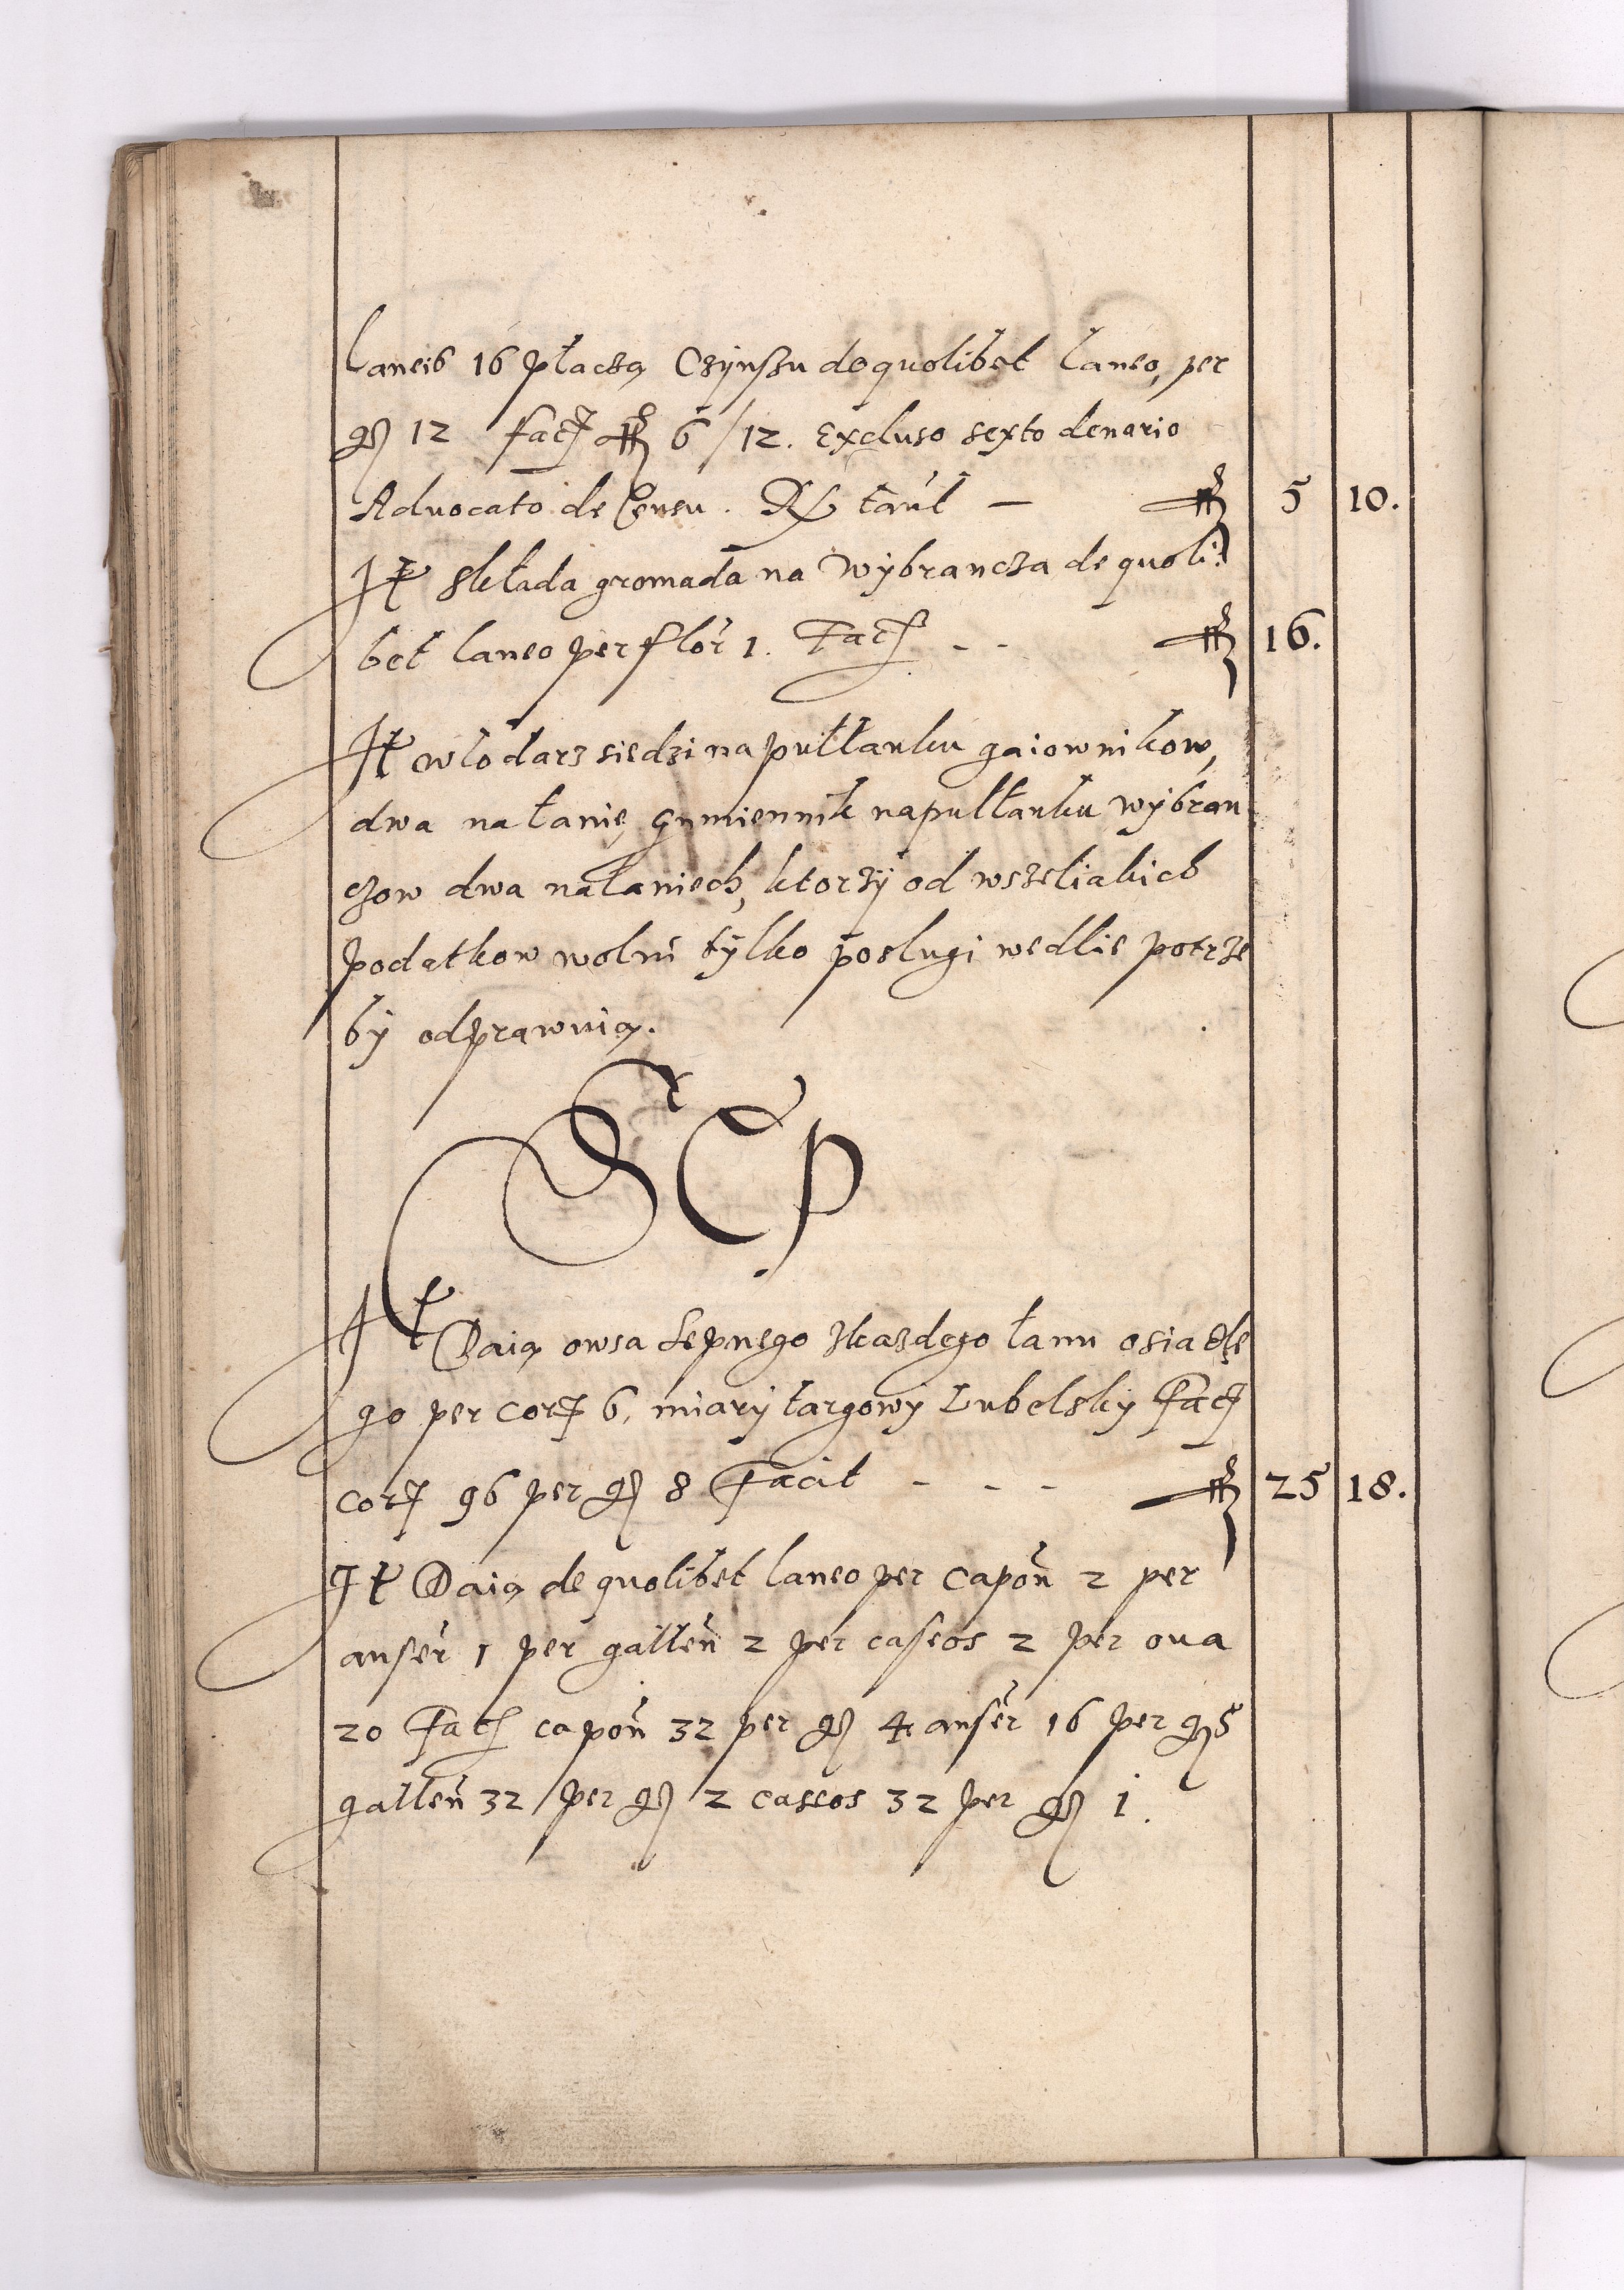 laneis 16 płaczą Czÿnszu de quolibet laneo, per
gr 12 fact fl 6/12. Excluso sexto denario
Aduocato de Censu. Rx tant — fl 5 10.
It Składa gromada na Wÿbrancza de quoli:
bet laneo per flor 1. Fact - - fl 16.
It włodarz siedzi na pułłanku gaiownikow,
dwa na łanie, gumiennik na pułłanku wÿbran
czow dwa na łaniech, ktorzÿ od wszeliakich
podatkow wolni tÿlko posługi wedlie potrze
bÿ odprawuią.
Sep
It Daią owsa sepnego zkazdego łanu osiadłe
go per cort 6, miarÿ targowy Lubelskÿ Fact
cort 96 per gr 8 Facit - - - fl 25 18.
It Daią de quolibet laneo per capon 2 per
anser 1 per gallen 2 per caseos 2 per oua
20 Fact capon 32 per gr 4 anser 16 per gr 5
gallen 32 per gr 2 caseos 32 per gr 1.